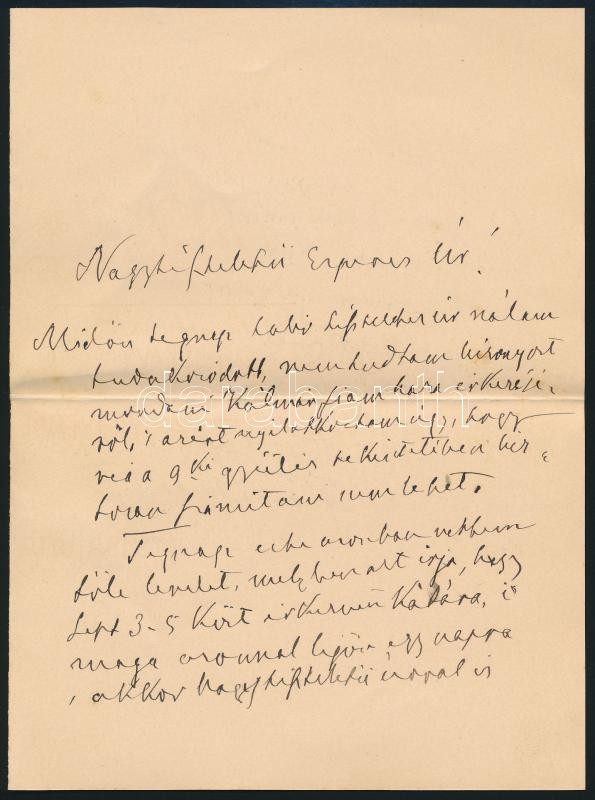 Nagytiszteletű Esperes Úr!
Midőn tegnap tiszteletes úr nálam
tudakozódott, nem tudtam bizonyost
mondani Kálmán fiam haza érkezésé-
ről, s azért nyilatkoztam úgy, hogy
reá a 9ki gyűlés tekintetében biz-
tosan számítani nem lehet.
Tegnap este azonban vettem
tőle levelet, melyben azt írja, hogy
Sept 3-5 közt érkezvén, ő
maga azonnal lejön egy napra
s akkor Nagytiszteletű úrral is
darabanth